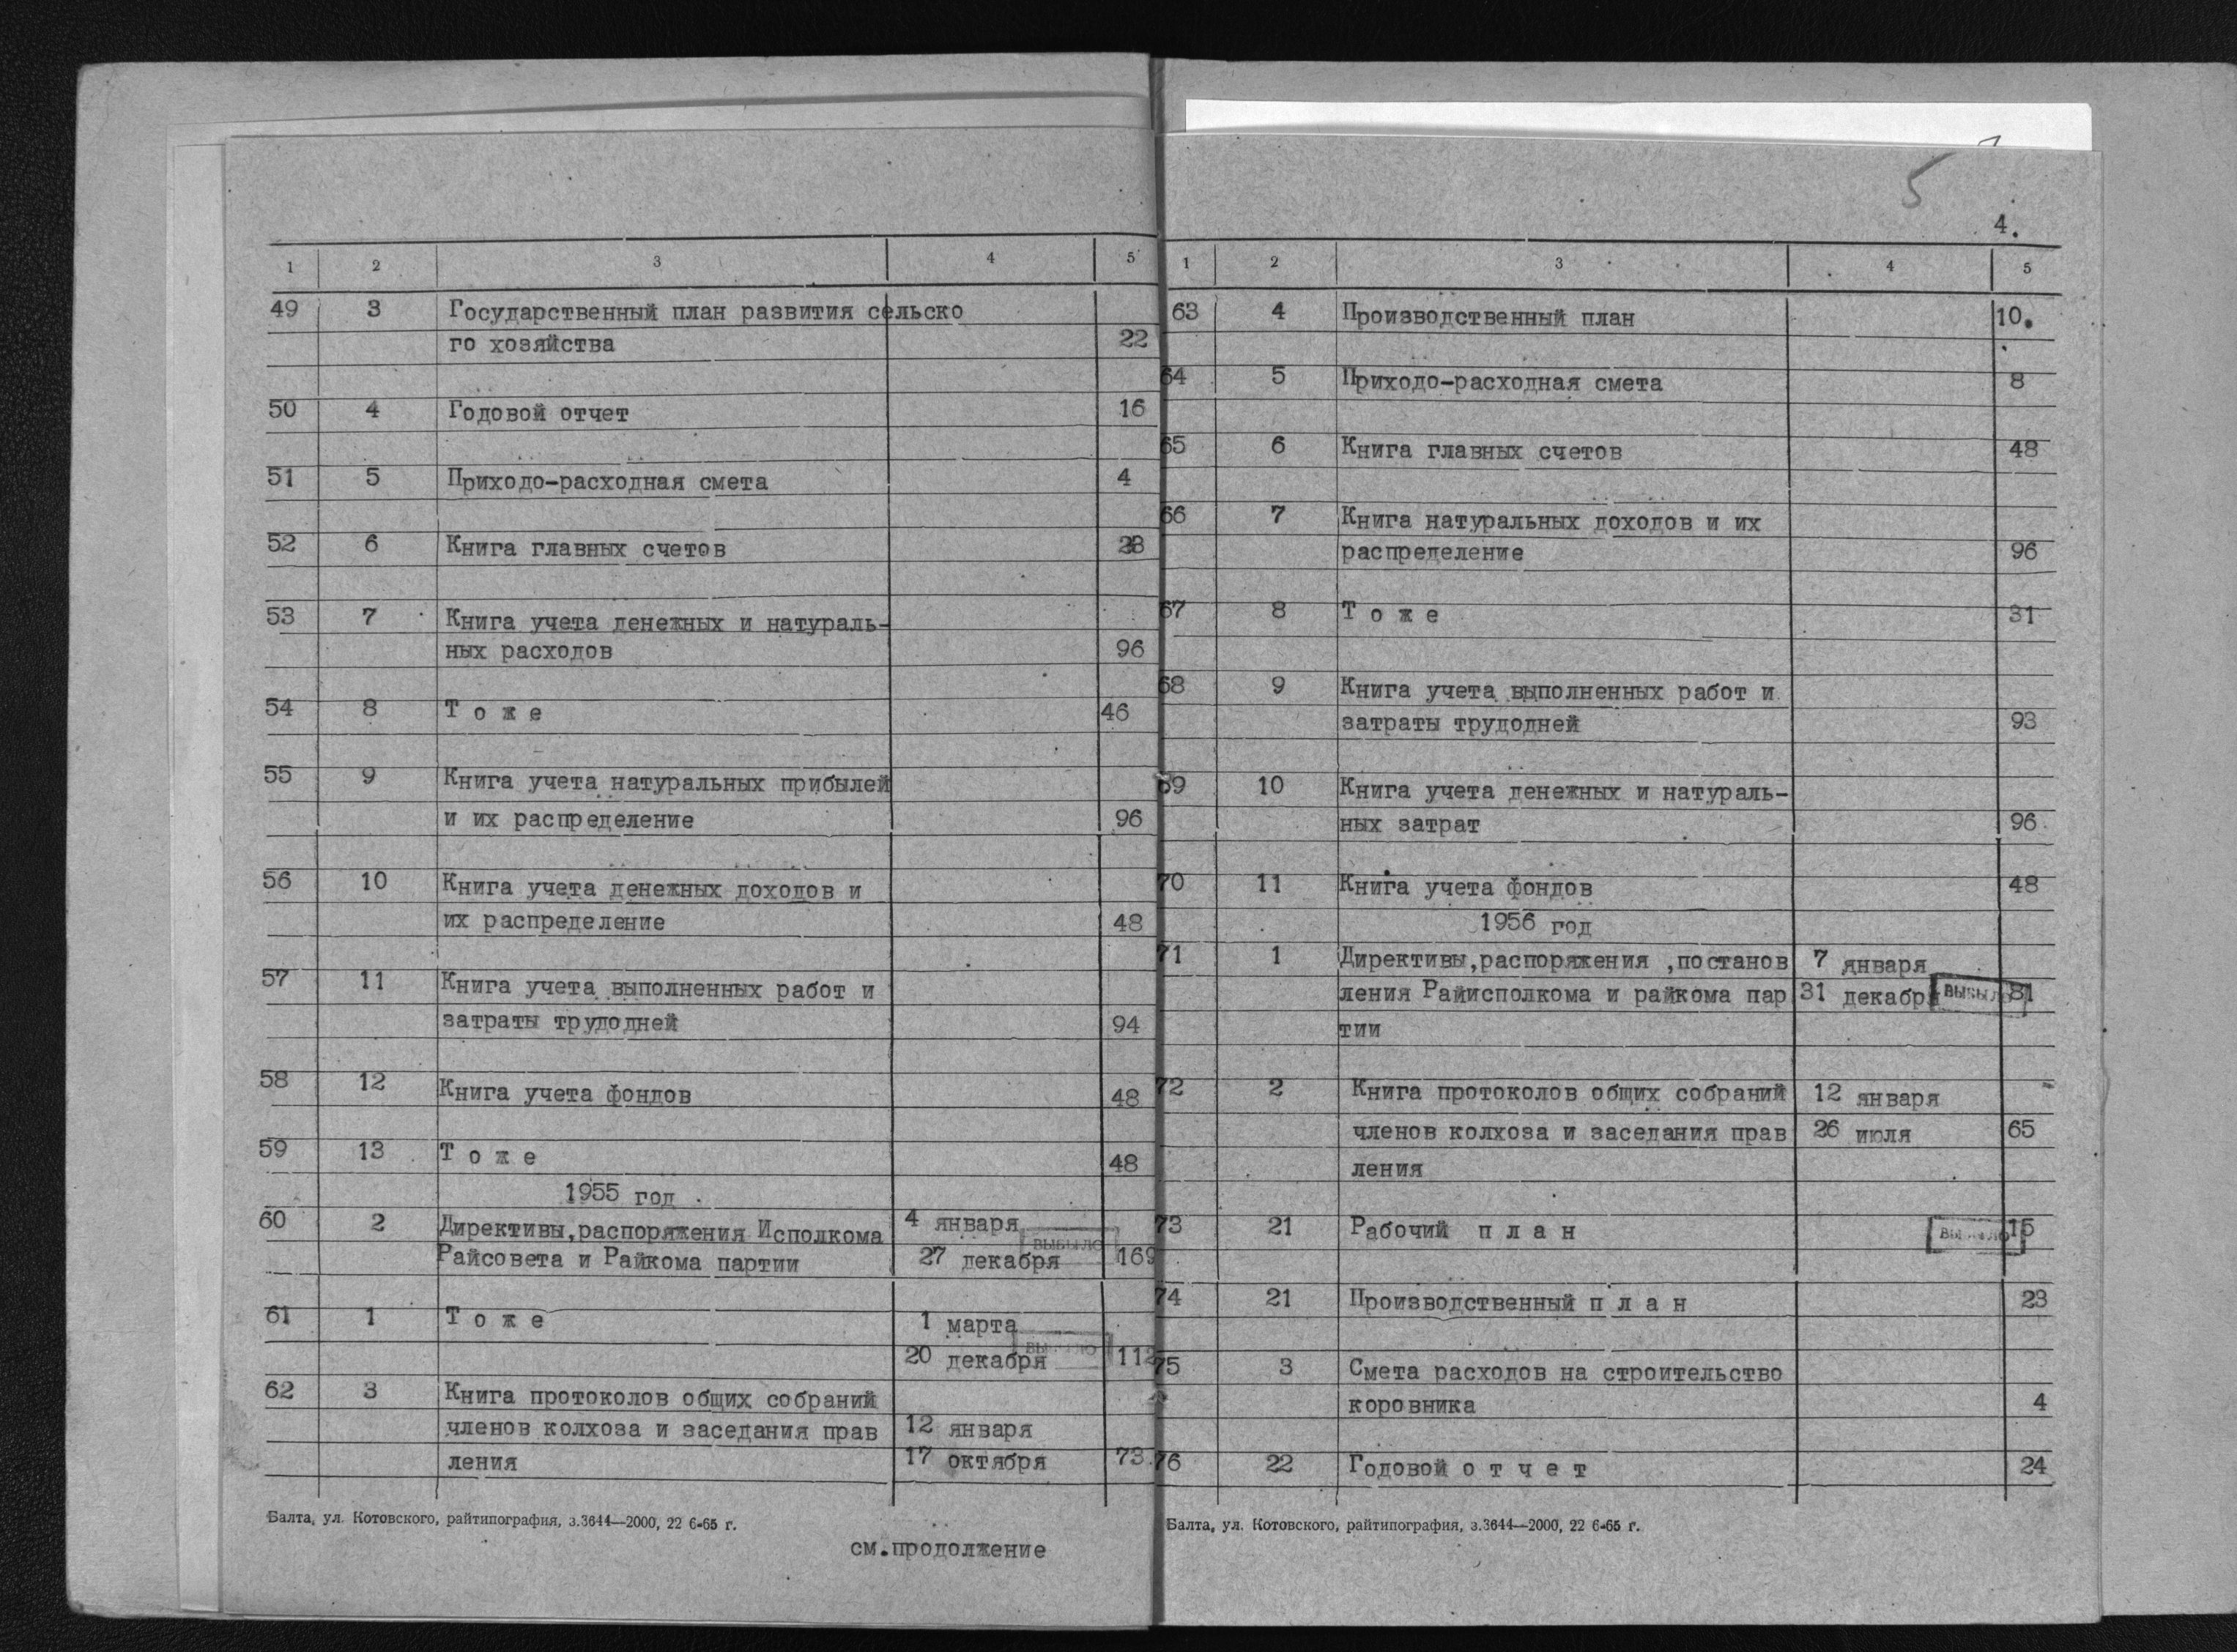 1 2 3 4 5
49 3 Государственный план развития сельско
го хозяйства 22
50 4 Годовой отчет 16
51 5 Приходо-расходная смета 4
52 6 Книга главных счетов
53 7 Книга учета денежных и натураль-
ных расходов 96
54 8 Т о ж е 46
55 9 Книга учета натуральных прибылей
и их распределение 96
56 10 Книга учета денежных доходов и
их распределение 48
57 11 Книга учета выполненных работ и
затраты трудодней 94
58 12 Книга учета фондов 48
59 13 Т о ж е 48
1955 год
60 2 Директивы,распоряжения Исполкома 4 января
Райсовета и Райкома партии 27 декабря ВЫБЫЛО 169
61 1 Т о ж е 1 марта
20 декабря ВЫБЫЛО 112
62 3 Книга протоколов общих собраний
членов колхоза и заседания прав 12 января
ления 17 октября 73
Балта, ул. Котовского, райтипография, з.3644—2000, 22 6-65 г.
см.продолжение
5
4.
1 2 3 4 5
63 4 Производственный план 10.
64 5 Приходо-расходная смета 8
65 6 Книга главных счетов 48
66 7 Книга натуральных доходов и их
распределение 96
67 8 Т о ж е 31
68 9 Книга учета выполненных работ и
затраты трудодней 93
69 10 Книга учета денежных и натураль-
ных затрат 96
70 11 Книга учета фондов 48
1956 год
71 1 Директивы,распоряжения ,постанов 7 января
ления Райисполкома и райкома пар 31 декабря ВЫБЫЛО 81
тии
72 2 Книга протоколов общих собраний 12 января
членов колхоза и заседания прав 26 июля 65
ления
73 21 Рабочий п л а н ВЫБЫЛО 15
74 21 Производственный п л а н 23
75 3 Смета расходов на строительство
коровника 4
76 22 Годовой о т ч е т 24
Балта, ул. Котовского, райтипография, з.3644—2000, 22 6-65 г.